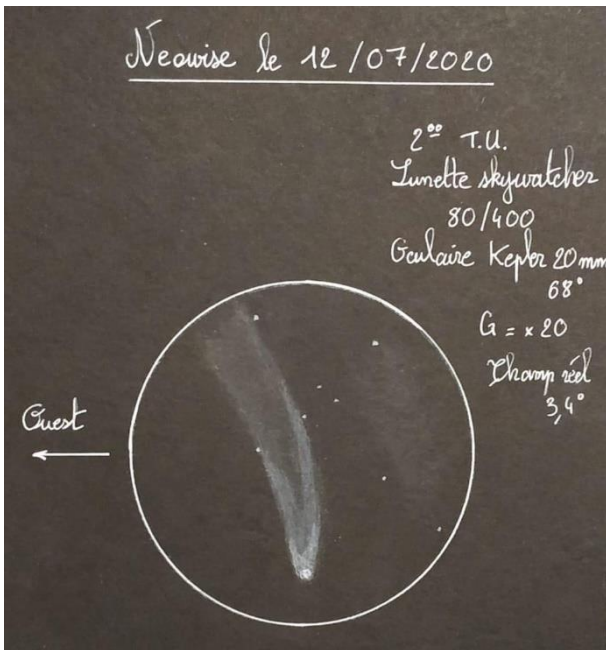 Neowise le 12/07/2020
2⁰⁰ T.U.
Lunette skywatcher
80/400
Oculaire Kepler 20mm
68°
G = x 20
Champ réel
3,4°
Ouest